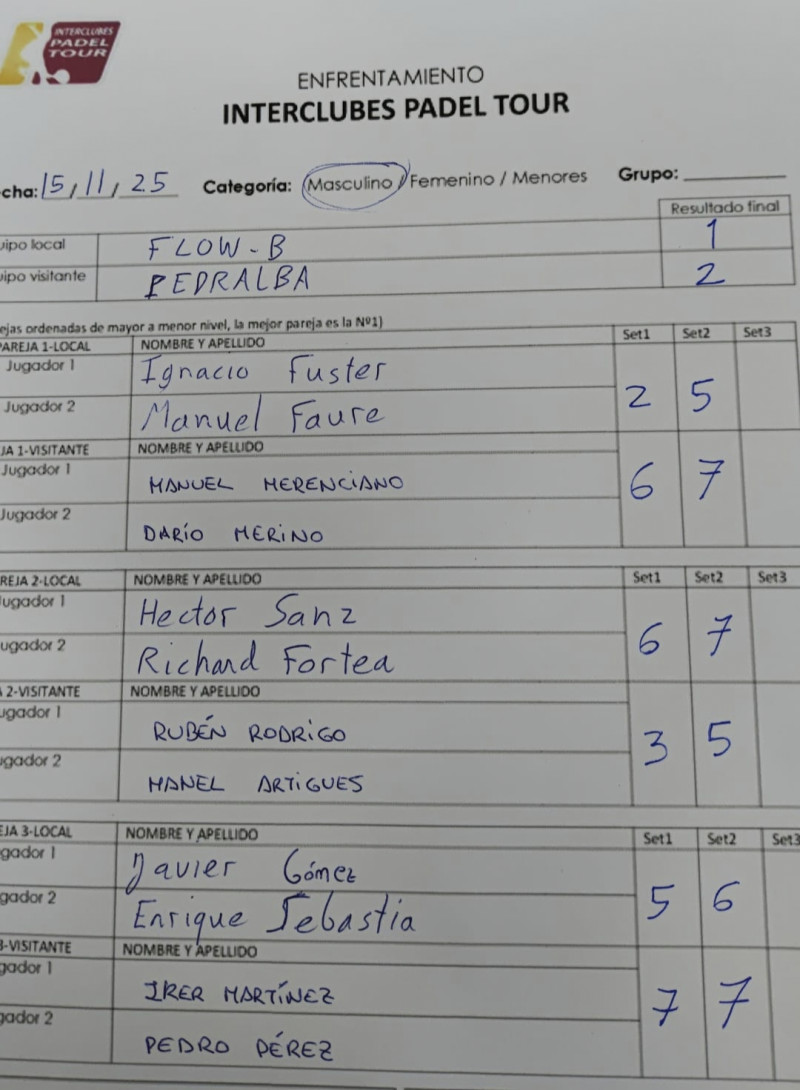 INTERCLUBES
PADEL
TOUR
ENFRENTAMIENTO
INTERCLUBES PADEL TOUR
cha: 15/11/25 Categoría: Masculino / Femenino / Menores Grupo:
Resultado final
uipo local FLOW-B 1
uipo visitante PEDRALBA 2
ejas ordenadas de mayor a menor nivel, la mejor pareja es la Nº1)
PAREJA 1-LOCAL NOMBRE Y APELLIDO Set1 Set2 Set3
Jugador 1 Ignacio Fuster
Jugador 2 Manuel Faure 2 5
JA 1-VISITANTE NOMBRE Y APELLIDO
Jugador 1 MANUEL MERENCIANO 6 7
Jugador 2 DARÍO MERINO
REJA 2-LOCAL NOMBRE Y APELLIDO Set1 Set2 Set3
Jugador 1 Hector Sanz
ugador 2 Richard Fortea 6 7
A 2-VISITANTE NOMBRE Y APELLIDO
ugador 1 RUBÉN RODRIGO 3 5
ugador 2 MANEL ARTIGUES
EJA 3-LOCAL NOMBRE Y APELLIDO Set1 Set2 Set3
gador 1 Javier Gómez
gador 2 Enrique Sebastia 5 6
3-VISITANTE NOMBRE Y APELLIDO
gador 1 MARTÍNEZ 7 7
gador 2 PEDRO PÉREZ